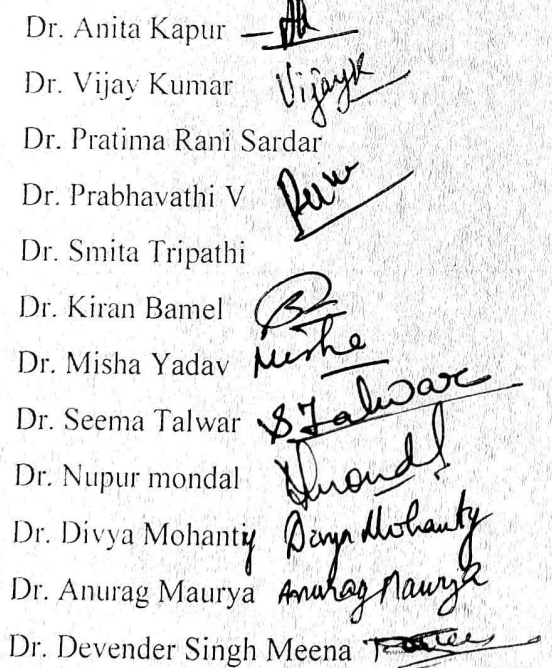 Dr. Anita Kapur
Dr. Vijay Kumar Vijayk
Dr. Pratima Rani Sardar
Dr. Prabhavathi V
Dr. Smita Tripathi
Dr. Kiran Bamel
Dr. Misha Yadav Misha
Dr. Seema Talwar STalwar
Dr. Nupur mondal Nmondal
Dr. Divya Mohanty Divya Mohanty
Dr. Anurag Maurya Anurag Maurya
Dr. Devender Singh Meena